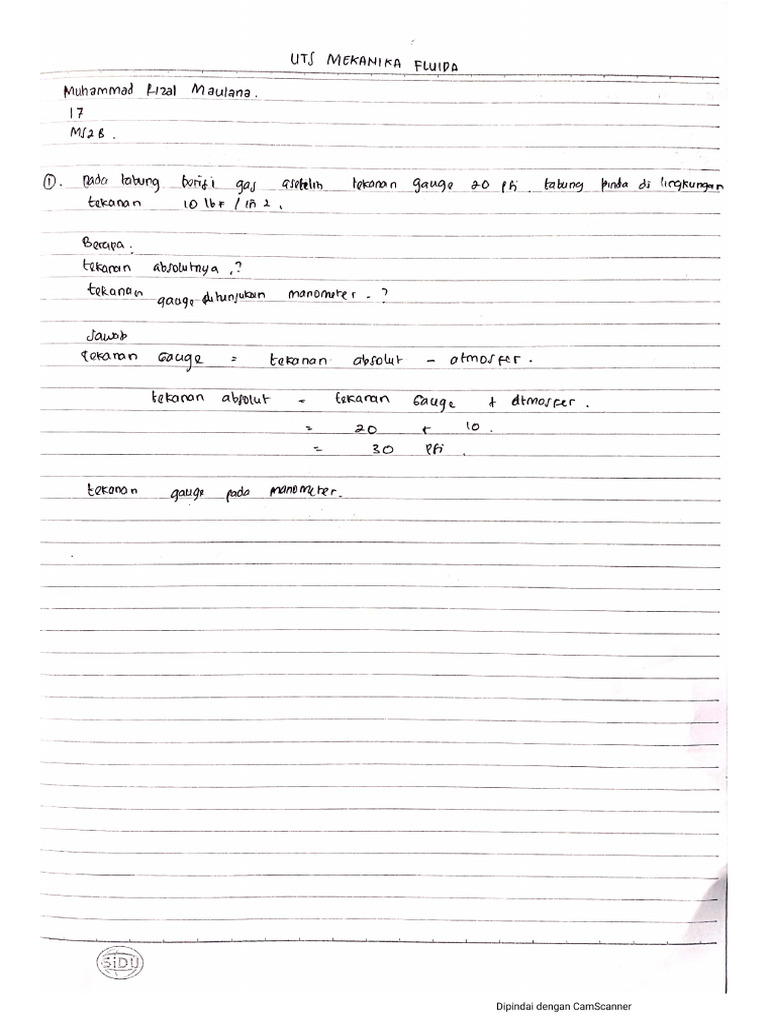 UTS MEKANIKA FLUIDA
Muhammad Rizal Maulana.
17
MS2B.
①. Pada tabung berisi gas asetelin tekanan gauge 20 Psi. tabung pinda di lingkungan
tekanan 10 lbF / in 2.
Berapa:
tekanan absolutnya.?
tekanan gauge ditunjukan manometer.?
Jawab
tekanan Gauge = tekanan absolut - atmosfer.
tekanan absolut = tekanan Gauge + atmosfer.
= 20 + 10.
= 30 Psi.
tekanan gauge pada manometer.
SiDU
Dipindai dengan CamScanner